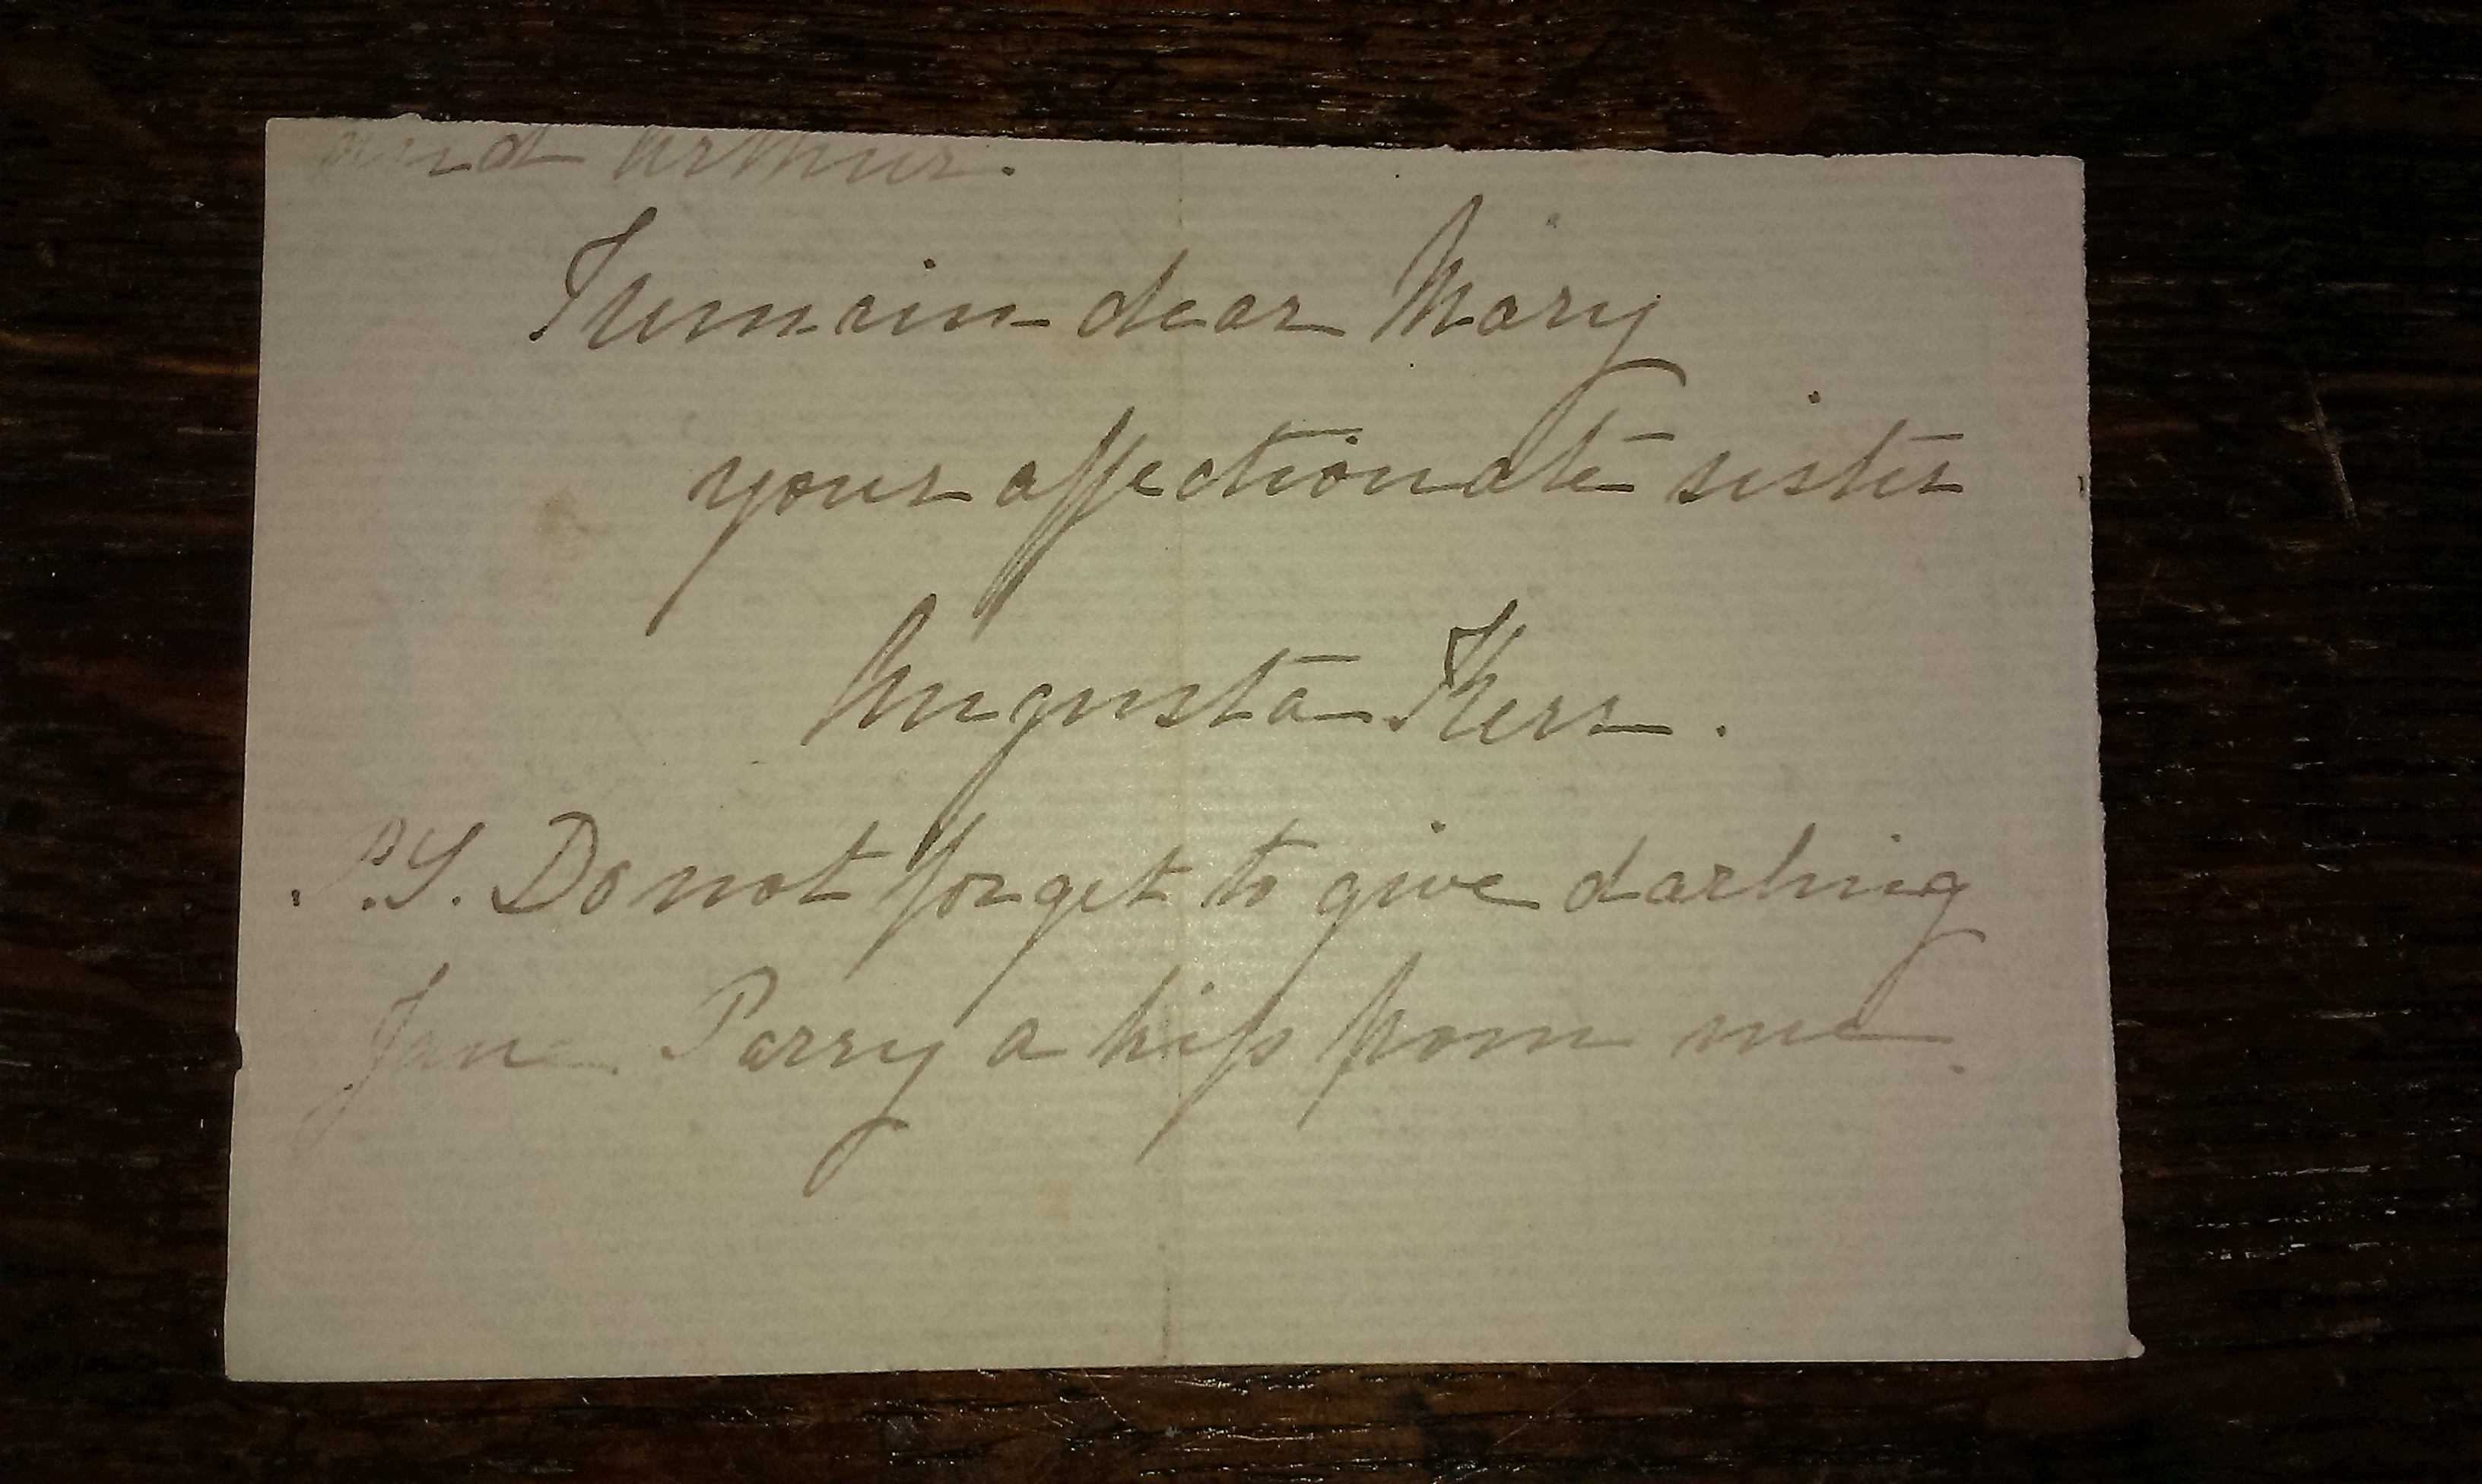 and Arthur.
I remain dear Mary
your affectionate sister
Augusta Kerr.
P.S. Do not forget to give darling
Jane Parry a kiſs from me.